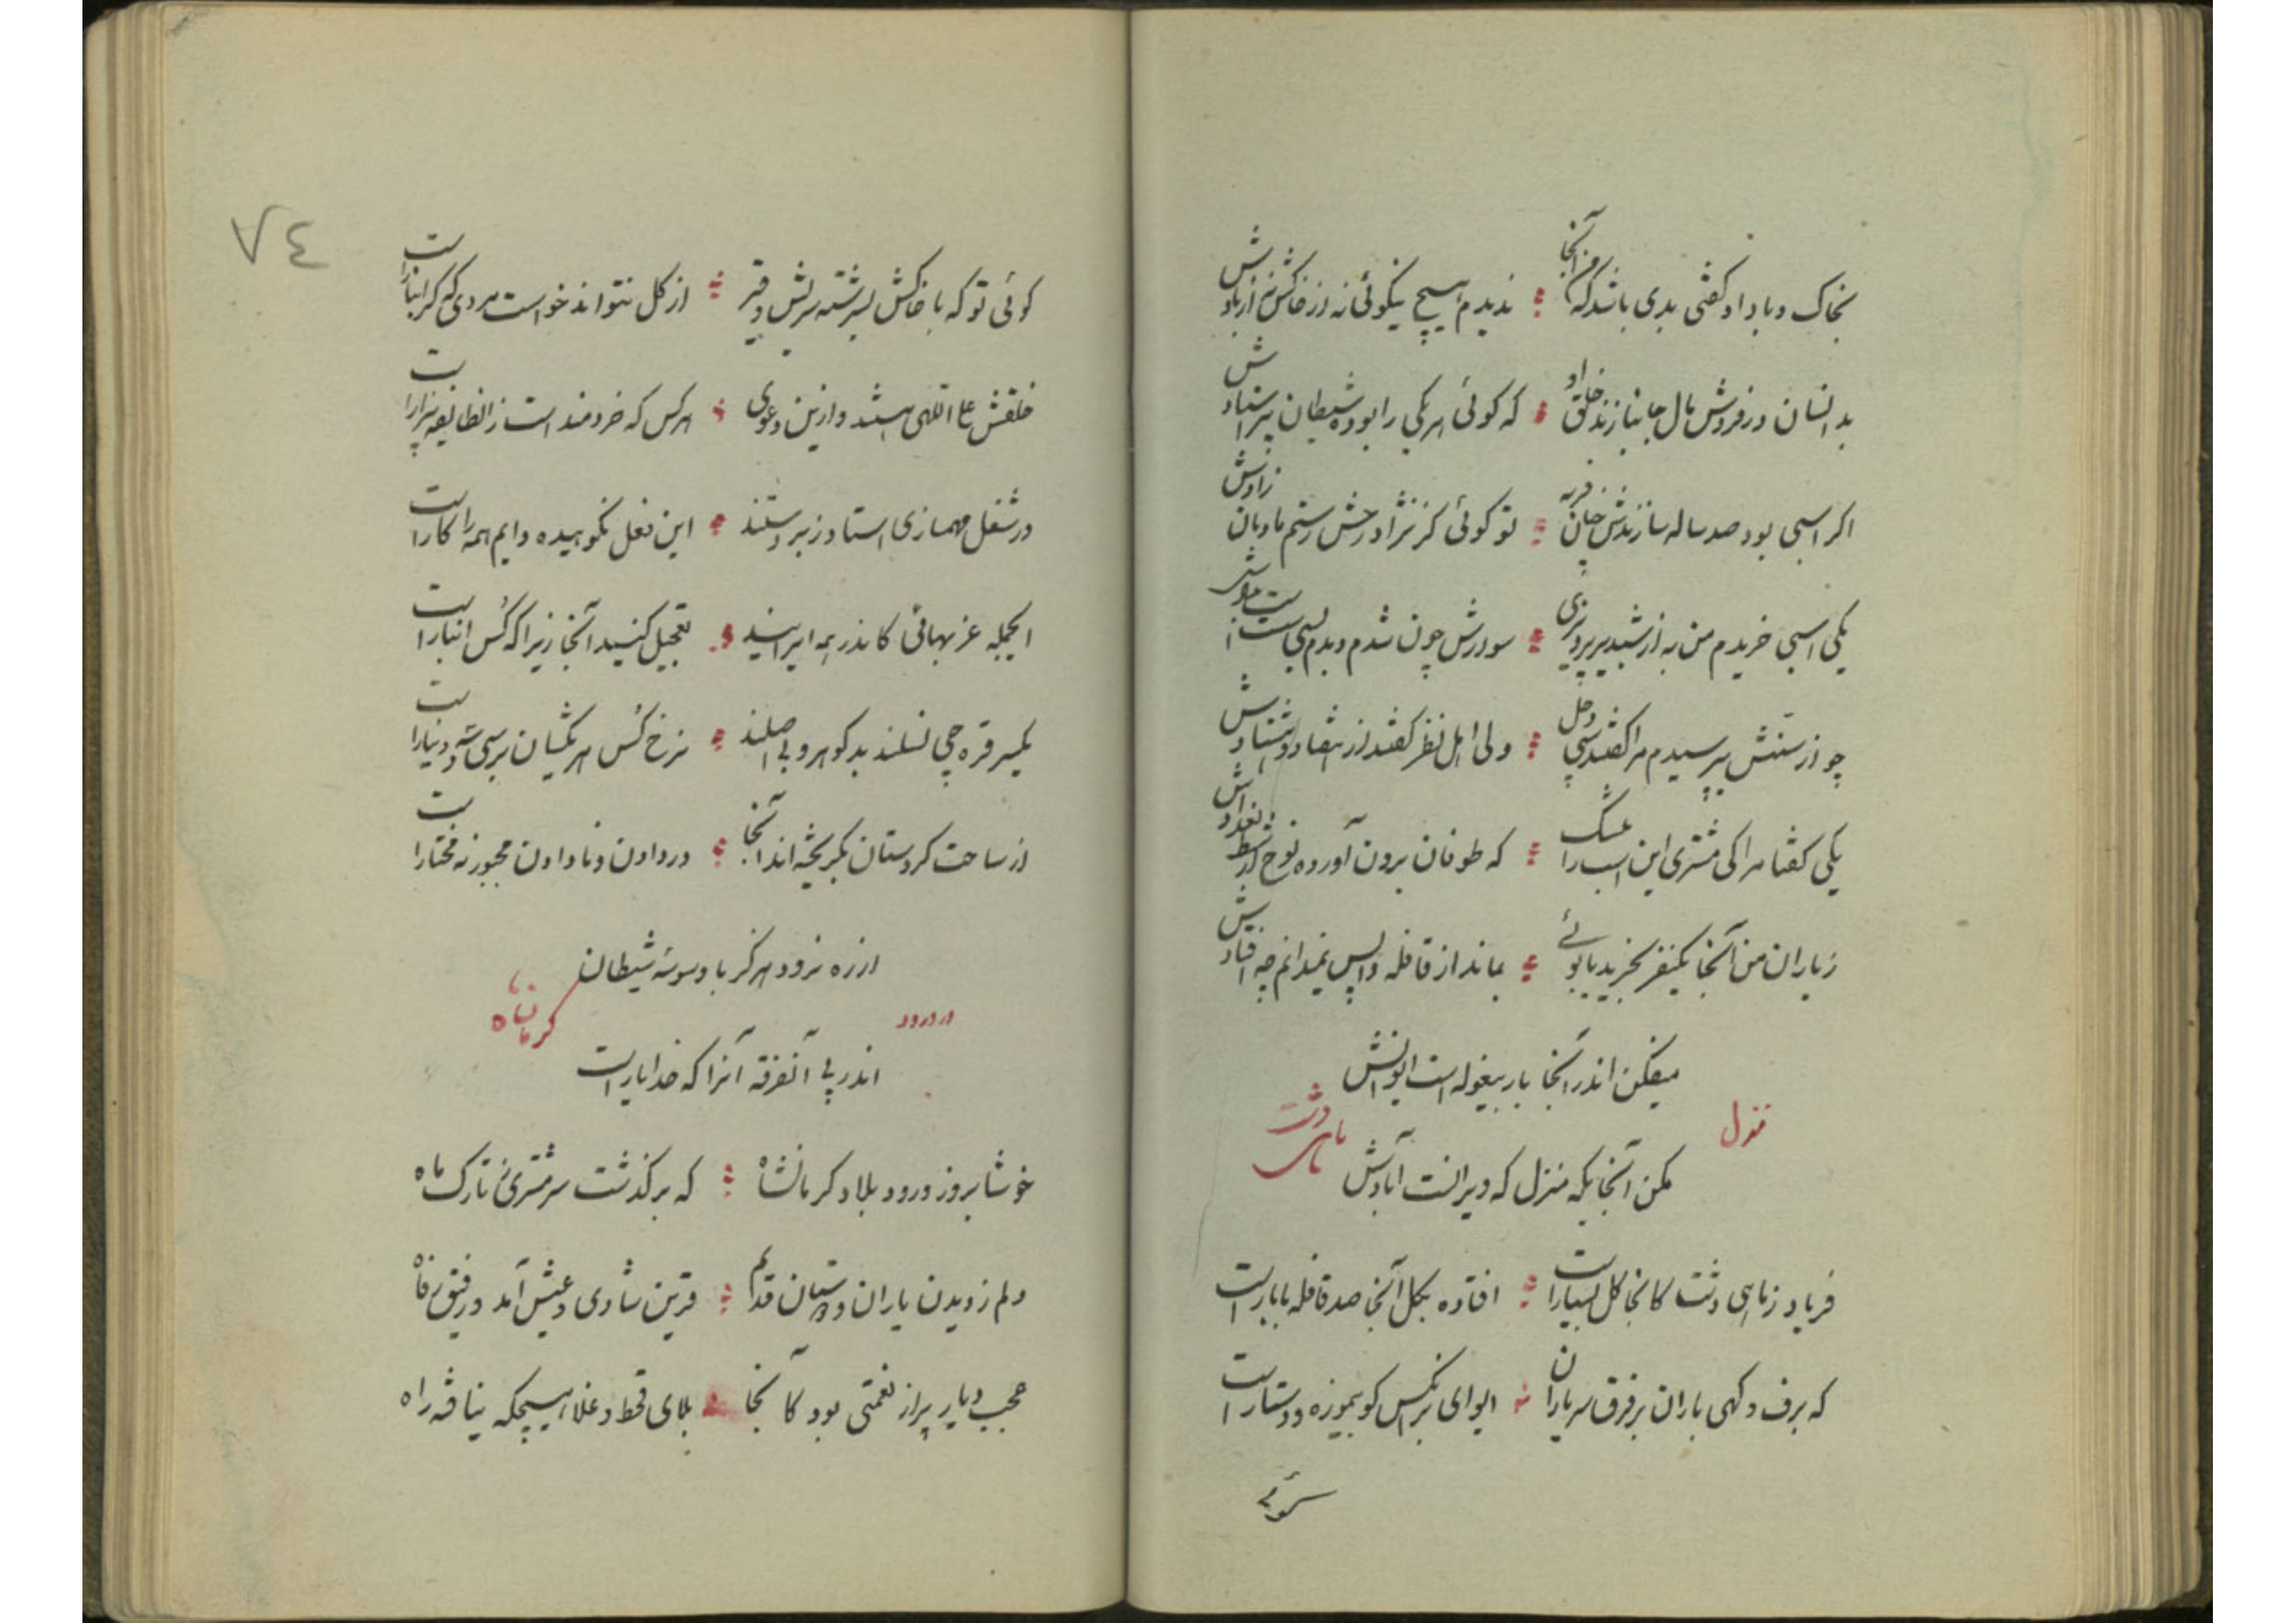 بخاک و باد او گفتی بدی باشد که من آنجا ندیدم هیچ نیکوئی نه از خاکش نه از بادش
بدانسان در فروش مال جانبازند خلق او که گوئی هر یکی را بوده شیطان پیر استادش
اگر اسبی بود صد ساله سازندش چنان فربه تو گوئی کز نژاد رخش رستم مادیان زادش
یکی اسبی خریدم من به از شبدیز پرویزی سوارش چون شدم دیدم بسی سست است
چو از سنش بپرسیدم مرا گفتند سی و حل ولی اهل نظر گفتند از هفتاد و هشتادش
یکی گفتا مرا کی مشتری این اسب را که طوفان برون آورده نوح از شط بغدادش
ز یاران من آنجا یکنفر بخرید یابوئی بماند از قافله واپس نمیدانم چه افتادش
میفکن اندر آنجا بار بیغوله است ایوانش
منزل ماهی دشت
مکن آنجایگه منزل که ویرانست آبادش
فریاد ز ماهی دشت کانجا گل بسیار است افتاده بگل آنجا صد قافله با بار است
که برف و گهی باران بر فرق سر یاران ایوای بر آنکس کو بیموزه و دستار است
گوئی
٧٤
گوئی تو که با خاکش بسرشته سریش و قیر از گل نتواند خواست مردی که گرانبار است
خلقش علی اللهی هستند و ازین دعوی هرکس که خردمند است زانطایفه بیزار است
در شغل مهمازی استاد و زبردستند این فعل نکوهیده دایم همه را کار است
الجمله عزبهائی کاندر همه ایرانید تعجیل کنید آنجا زیرا که کُس انبار است
یکسر قره چی نسلند بد گوهر و بی اصلند نرخ کُس هر یکشان برسی شه و دینار است
از ساحت کردستان بگریخته اند آنجا در دادن و نادادن مجبور نه مختار است
از ره نرود هرگز با وسوسه شیطان
در ورود کرمانشاه
اندر پی آنفرقه آنرا که خدا یار است
خوشا بروز ورود بلاد کرمانشاه که برگذشت سر مشتری ز تارک ماه
دلم ز دیدن یاران و دوستان قدیم قرین شادی و عیش آمد و رفیق رفاه
عجب دیار پر از نعمتی بود کآنجا بلای قحط و غلا هیچگه نیافته راه